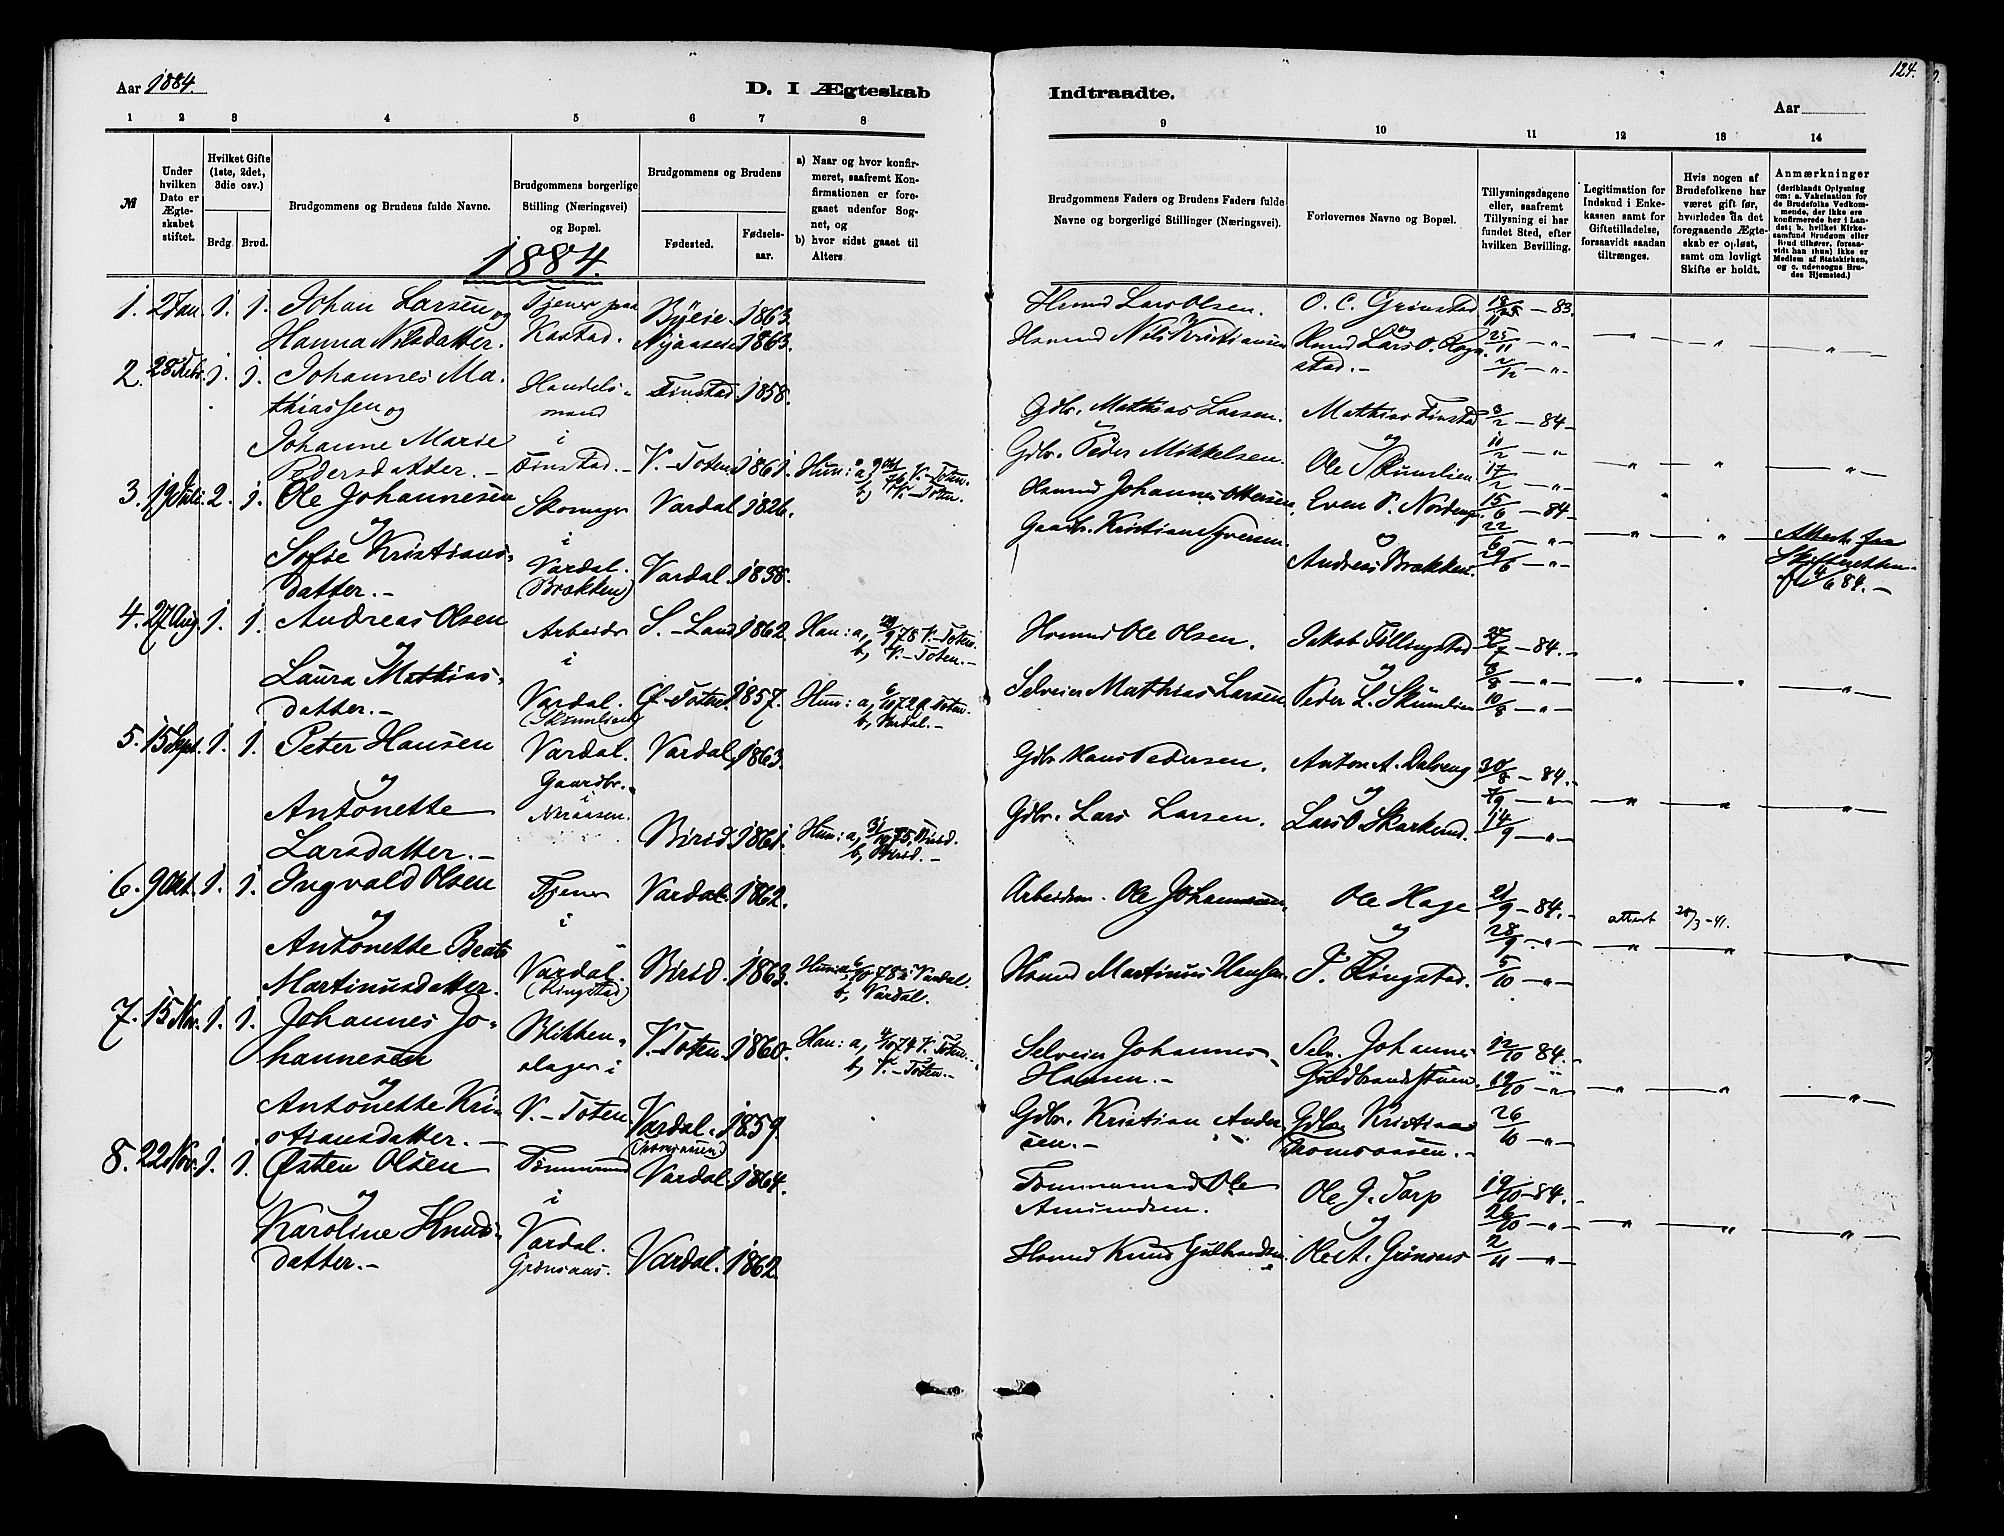 Aar 1884.
D. I Ægteskab
Indtraadte.
124.
Aar
1 2 3 4 5 6 7 8
9 10 11 12 13 14
№
Under hvilken Dato er Ægteskabet stiftet.
Hvilket Gifte (1ste, 2det, 3die osv.)
Brdg. Brud.
Brudgommens og Brudens fulde Navne.
Brudgommens borgerlige Stilling (Næringsvei) og Bopæl.
Brudgommens og Brudens
Fødested.
Fødselsaar.
a) Naar og hvor konfirmeret, saafremt Konfirmationen er foregaaet udenfor Sognet, og
b) hvor sidst gaaet til Alters.
Brudgommens Faders og Brudens Faders fulde Navne og borgerlige Stillinger (Næringsvei).
Forlovernes Navne og Bopæl.
Tillysningsdagene eller, saafremt Tillysning ei har fundet Sted, efter hvilken Bevilling.
Legitimation for Indskud i Enkekassen samt for Giftetilladelse, forsaavidt saadan tiltrænges.
Hvis nogen af Brudefolkene har været gift før, hvorledes da det foregaaende Ægteskab er opløst, samt om lovligt Skifte er holdt.
Anmærkninger
(deriblandt Oplysning om: a. Vakcination for de Brudefolks Vedkommende, der ikke ere konfirmerede her i Landet; b. hvilket Kirkesamfund Brudgom eller Brud tilhører, forsaavidt han (hun) ikke er Medlem af Statskirken, og c. udensogns Brudes Hjemsted.)
1884.
1. 2 Jan. 1. 1. Johan Larsen og Tjener paa Byeie. 1863. Hsmd Lars Olsen. O. C. Grinstad 83.
Hanna Nilsdatter. Kastad. 1863. Hsmd Nils Kristiansen Knud Lars O.
stad.
2. 28 Febr. 1. 1. Johannes Ma- Handels- Finstad 1858. Gdbr. Mathias Larsen. Mathias Finstad 3/2 - 84
thiassen og mand
Johanne Marie i Gdbr. Peder Mikkelsen. og 11/2
Pedersdatter. Finstad. V.-Toten 1861. Hun: a, 9 okt. 76 V.-Toten. Ole Skumlien. 17/2
b, V.-Toten.
3. 19 Juli. 2. 1. Ole Johannesen Skomager Vardal 1826. Hsmd Johannes Ottersen. Even P. Nordeng. 15/6 - 84
og i Gaardbr. Kristian Iversen. og 22/6 Attest fra
Sofie Kristians- Vardal. Andreas Brækken. 29/6 Skifteretten
datter. (Brækken) Vardal. 1838. af 4/6 84.
4. 27 Aug. 1. 1. Andreas Olsen Arbeider S.-Land 1862. Han: a, 29/9 78 V.-Toten. Hsmd Ole Olsen. Jakob Føllingstad 27/7 - 84.
og i b, V.-Toten. og 3/8
Laura Mathias- Vardal. Ø-Toten. 1857. Hun: a, 6/10 72 Ø.Toten. Selveier Mathias Larsen Peder L. Skumlien 10/8
datter. (Skumlien) b, Vardal.
5. 15 Sept. 1. 1. Peter Hansen Vardal. Vardal 1863. Gdbr. Hans Pedersen. Anton A. Dalseng 30/8 - 84.
og Gaardbr. og 7/9
Antonette i Gdbr. Lars Larsen. Lars O. Skarlund. 14/9
Larsdatter. Birid. 1861. Hun: a, 31/10 75. Birid.
b, Birid.
6. 9 Okt. 1. 1. Ingvald Olsen Tjener Vardal. 1862. Arbeidsm. Ole Johannesen. Ole Hage 21/9 - 84. attest 28/3 - 41.
og i og 28/9
Antonette Beate Vardal. Birid. 1863. 78 Vardal. Hsmd Martinus Hansen P. Ringstad. 5/10
Martinusdatter. (Ringstad) b, Vardal.
7. 15 Nov. 1. 1. Johannes Jo- Blikken- V.-Toten. 1860. Han: a, 4/10 74 V.-Toten. Selveier Johannes Selv. Johannes 12/10 84.
hannesen slager i b, V.-Toten. Hansen. Guldbrandstuen 19/10
og
Antonette Kri- V.-Toten Vardal. 1859. Gdbr. Kristian Ander- Gdbr Kristian 26/10
stiansdatter. sen.
8. 22 Nov. 1. 1. Østen Olsen Tømmermand Vardal. 1864. Tømmermand Ole Ole J. Torp 19/10 - 84.
og i Amundsen. og 26/10
Karoline Knuds- Vardal. Vardal. 1862. Hsmd Knud Gulbrandsen. Ole A. 2/11
datter. Grønsaas.